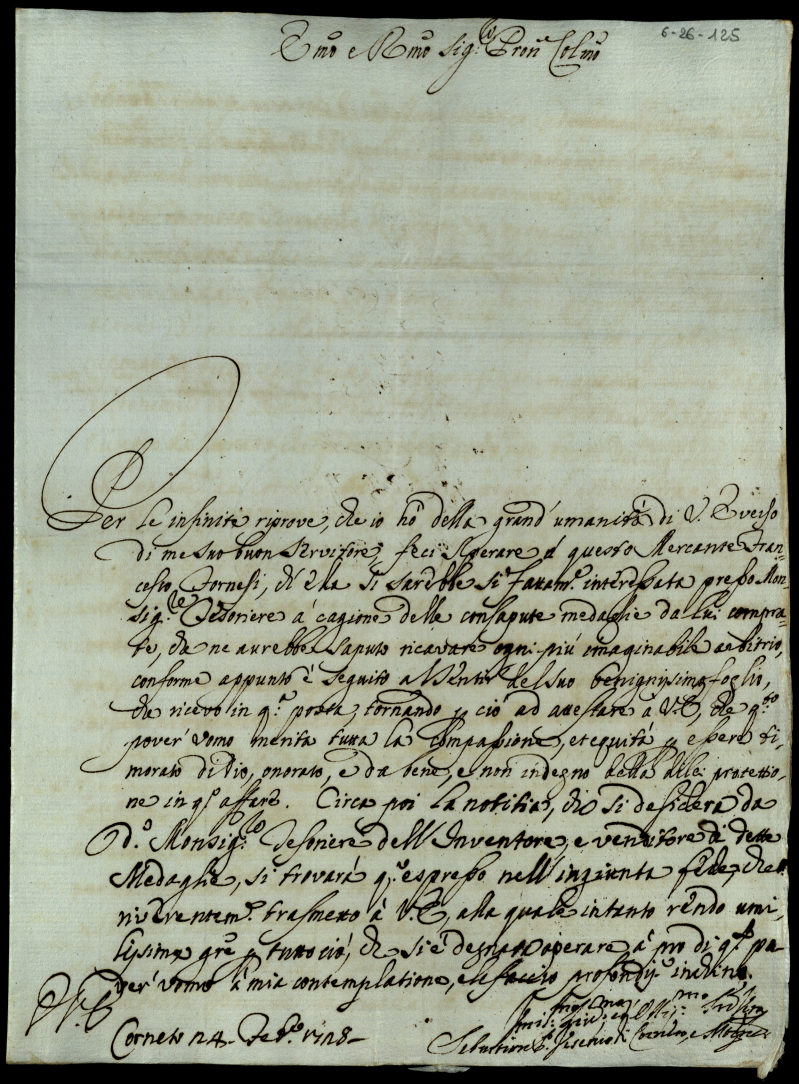 6-26-125
Emo e Rmo Sig.re Pron Colmo
Per le infinite riprove, che io hò della grand'umanità di V. E verso
di me suo buon Servitore, feci sperare á questo Mercante Fran-
cesco Fornesi, ch'ella si sarebbe interessata presso Mon-
sig.re Tesoriere á cagione delle consapute medaglie da lui compra-
te, che ne avrebbe saputo ricavare ogni più imaginabile arbitrio,
conforme appunto é seguito del suo benignissimo foglio,
che ricevo in q.ta posta, tornando p ciò ad attestare á V. E, che q.sto
pover'vomo merita tutta la compassione, et equità p essere ti-
morato di Dio, onorato, e da bene, e non indegno della di lei protettio-
ne in q.o affare. Circa poi la notitia, che si desidera da
d.o Monsig.re Tesoriere dell'Inventore, e venditore di dette
Medaglie, si trovará q.o espresso nell'ingiunta fede, che
riverentem.e trasmetto á V. E, alla quale intanto rendo umi-
lissime gre p tutto ciò, che si é degnata operare á pro di q.sto po-
ver'vomo á mia contemplatione, e le faccio profondis.o inchino.
D V. E
Corneto 24. Feb.ro 1728